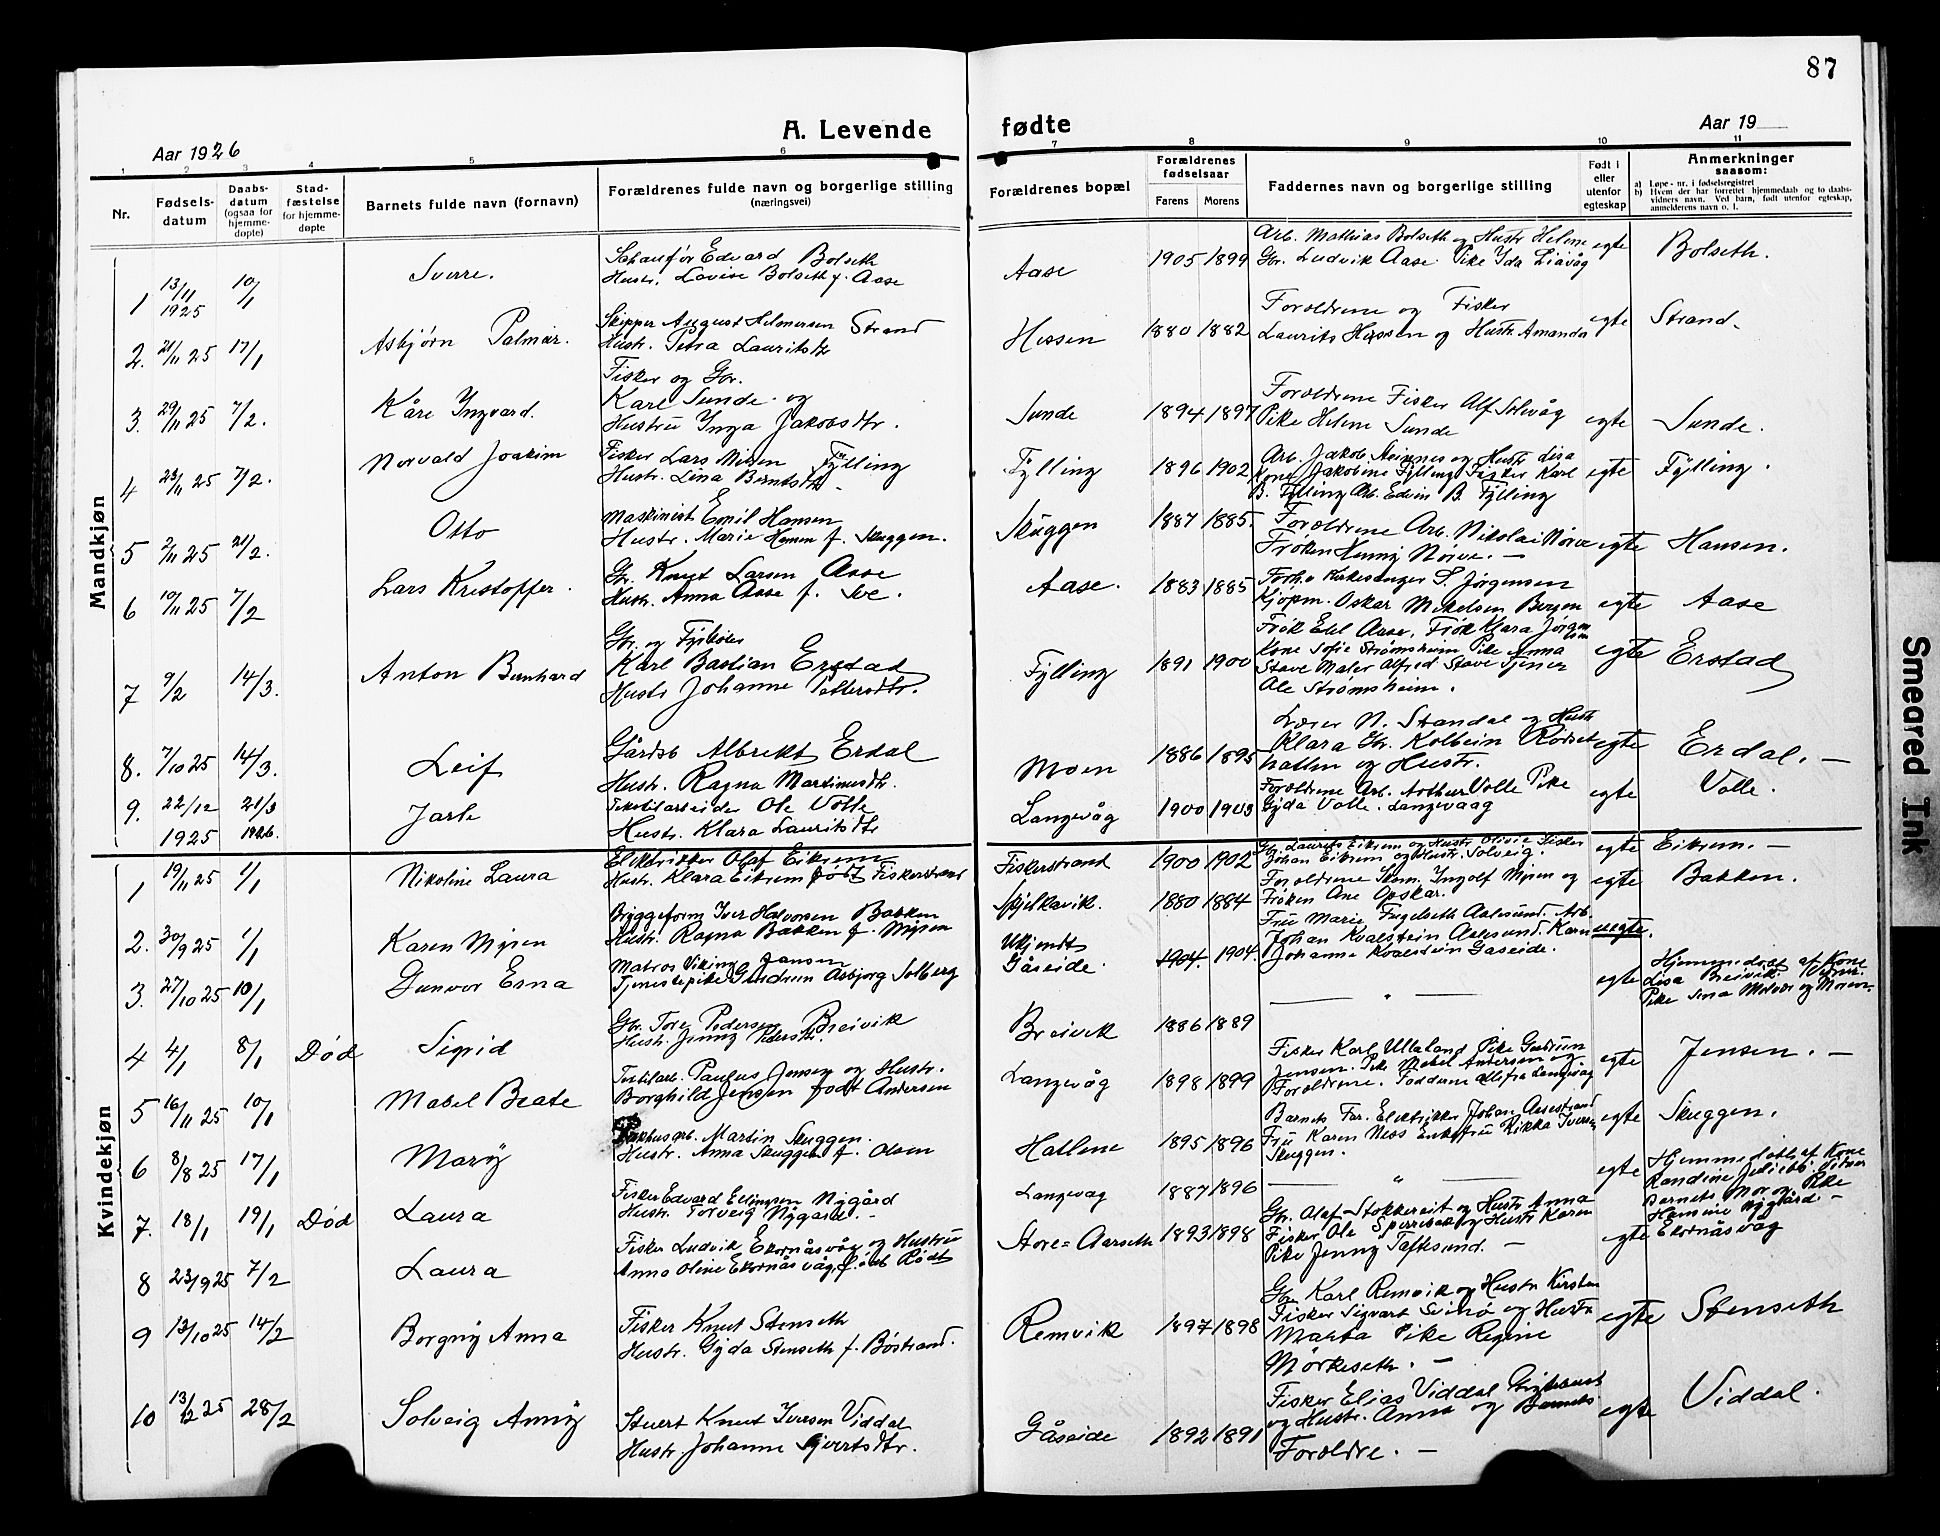 87
A. Levende fødte
Aar 1926
Aar 19
1 2 3 4 5 6 7 8 9 10 11
Nr.
Fødsels-
datum
Daabs-
datum
(ogsaa for
hjemme-
døpte)
Stad-
fæstelse
for hjemme-
døpte
Barnets fulde navn (fornavn)
Forældrenes fulde navn og borgerlige stilling
(næringsvei)
Forældrenes bopæl
Forældrenes
fødselsaar
Farens Morens
Faddernes navn og borgerlige stilling
Født i
eller
utenfor
egteskap
Anmerkninger
saasom:
a) Løpe-nr. i fødselsregistret
b) Hvem der har forrettet hjemmedaab og to daabs-
vidners navn. Ved barn, født utenfor egteskap,
anmelderens navn o. l.
Mandkjøn
1 13/11 1925 10/1 Sverre.
Edvard Bolseth
Hustr. Lovise Bolseth f. Aase
Aase 1905 1899
Arb. Mathias Bolseth og Hustr Helene
Gbr. Ludvik Aase. Pike Ida Liavåg
egte Bolseth.
2. 21/11 25 17/1 Asbjørn Palmar.
Skipper August Helmersen Strand
Hustr. Petra Lauritsdtr
Hessen 1880 1882
Foroldrene og Fisker
Laurits Hessen og Hustr Amanda
egte Strand.
3. 29/11 25 7/2. Kåre Ingvard.
Fisker og Gbr.
Karl Sunde og
Hustru Inga Jakobsdtr.
Sunde 1894 1897
Foroldrene Fisker Alf Solvåg
Pike Helene Sunde
egte Sunde.
4 23/11 25 7/2. Norvald Joakim
Fisker Lars Nilsen Fylling
Hustr. Lina Berntsdtr
Fylling 1896 1902
Arb. Jakob Steinnes og Hustr Lisa
Kone Jakobine Fylling Fisker Karl
B. Fylling Arb. Edvin B. Fylling
egte Fylling.
5 2/11 25 21/2. Otto
Maskinist Emil Hansen
Hustr. Marie Hansen f. Skuggen.
Skuggen 1887 1885.
Foroldrene Arb. Nikolai Nørve
Frøken Henny Nørve. —
egte Hansen.
6 10/11 25 7/2 Lars Kristoffer.
Gbr. Knut Larsen Aase
Hustr. Anna Aase f. Sve.
Aase. 1883 1885
Kirkesanger S. Jørgensen
Kjøpm. Oskar Mikelsen Bergen
Frøk Edel Aase. Frøk Klara Jørgensen
egte Aase
7 9/2 14/3. Anton Bernhard
Gbr. og
Karl Bastian Erstad
Hustr Johanne Pettersdtr.
Fylling 1891 1900
Kone Sofie Strømsheim Pike Anna
Stave Maler Alfred Stave Tjener
Ole Strømsheim.
egte Erstad
8. 7/10 25 14/3. Leif
Gårdsb Albrekt Erdal
Hustr. Ragna Martinusdtr.
Moen 1886 1895
Lærer N. Standal og Hustr
Klara Gbr. Kolbein Rødset
Hatlen og Hustr.
egte Erdal. —
9. 22/12 1925 21/3 1926. Jarle
Tekstilarbeider Ole Volle
Hustr. Klara Lauritsdtr
Langevåg 1900 1903
Foroldrene Arb. Arthur Volle Pike
Gyda Volle. Langevaag
egte Volle.
Kvindekjøn
1 19/11 25 1/1 Nikoline Laura
Elektrikker Olaf Eikrem
Hustr. Klara Eikrem født Fiskerstrand
Fiskerstrand 1900 1902
Gbr. Laurits Eikrem og Hustr Olivie Fisker
Johan Eikrem og Hustr. Solveig.
egte Eikrem. —
2. 30/9 25 1/1 Karen Myren
Bryggeform Iver Halvorsen Bakken
Hustr. Ragna Bakken f. Myren
Spjelkavik. 1880 1884
Foroldrene Skom. Ingolf Myren og
Frøken Ane Opskar.
egte Bakken.
3. 27/10 25 10/1 Gunvor Esna
Matros Viking Jansen
Tjenestepike Gudrun Asbjørg Solberg
Ukjendt
Gåseide. 1904. 1904.
Fru Marie Fugelseth Aalesund. Arb.
Johan Kvalstein Aalesund. Karn
Johanne Kvalstein Gaseide.
uegte.
4 4/1 8/1 Død Sigrid
Gbr. Tore Pedersen Breivik
Hustr. Jenny Pedersdtr.
Breivik 1886 1889
— " —
egte Hjemmedøbt af Kone
Lisa Breivik.
Pike Sina
5 16/11 25 10/1 Mabel Beate
Textilarb. Paulus Jensen og Hustr.
Borghild Jensen født Andersen
Langevåg 1898 1899
Fisker Karl Ullaland Pike Gudrun
Jensen. Pike Mabel Andersen og
Foroldrene. Fadderne alle fra Langevåg
egte Jensen. —
6 8/8 25 17/1 Mary
Pakhusarb. Martin Skuggen.
Hustr. Anna Skuggen f. Olsen
Hatlene 1895 1896
Barnets Far. Elektrikker Johan Aasestrand
Fru Karen Ness Enkefru Rikka Iversen
Skuggen.
egte Skuggen.
7. 18/1 19/1 Død Laura
Fisker Edvard Ellingsen Nygård
Hustr. Torveig Nygård. —
Langevag 1887 1896
— " —
egte Hjemmedøbt af Kone
Randine
Barnets Mor og Pike
Hansine Nygård. —
8 23/9 25 7/2 Laura
Fisker Ludvik Ekornåsvåg og Hustru
Anna Oline Ekornåsvåg født Rødt
Store=Aarseth 1893 1898
Gbr. Olaf Stokkereit og Hustr Anna
Fisker Ole Sperrebak og Hustr Karen
Pike Jenny Tafksund. —
egte Ekornåsvåg
9 13/10 25 14/2 Borgny Anna
Fisker Knut Stenseth
Hustr. Gyda Stenseth f. Bøstrand.
Remvik 1897 1898
Gbr Karl Remvik og Hustr Kirsten
Fisker Sigvart Svinø og Hustr
Marta Pike Regine
Mörkeseth. —
egte Stenseth
10 13/12 25 28/2 Solveig Anny
Stuert Knut Iversen Viddal
Hustr. Johanne Sjvertsdtr.
Gåseide 1892 1891
Fisker Elias Viddal
og Hustr. Anna og Barnets
Foroldre. —
egte Viddal.
Smeared Ink